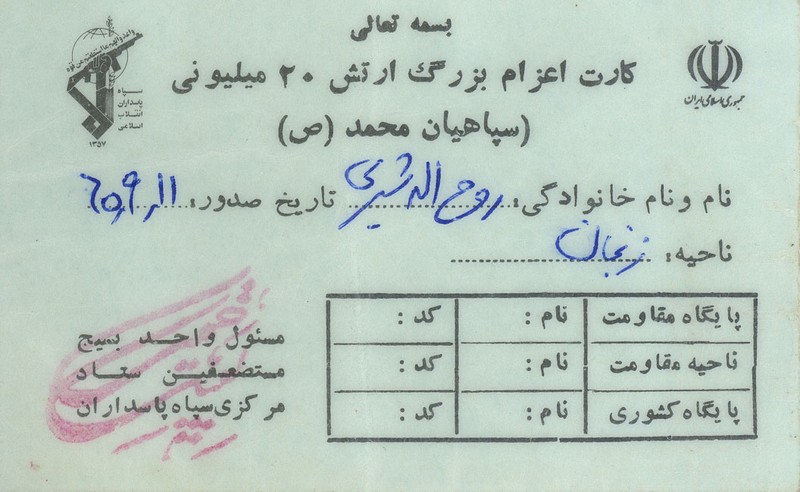 بسمه تعالی
کارت اعزام بزرگ ارتش ۲۰ میلیونی
(سپاهیان محمد (ص)
جمهوری اسلامی ایران
سپاه
پاسداران
انقلاب
اسلامی
۱۳۵۷
نام و نام خانوادگی: روح اله شیری تاریخ صدور:
ناحیه: زنجان
پایگاه مقاومت نام : کد :
ناحیه مقاومت نام : کد :
پایگاه کشوری نام : کد :
مسئول واحد بسیج
مستضعفین ستاد
مرکزی سپاه پاسداران